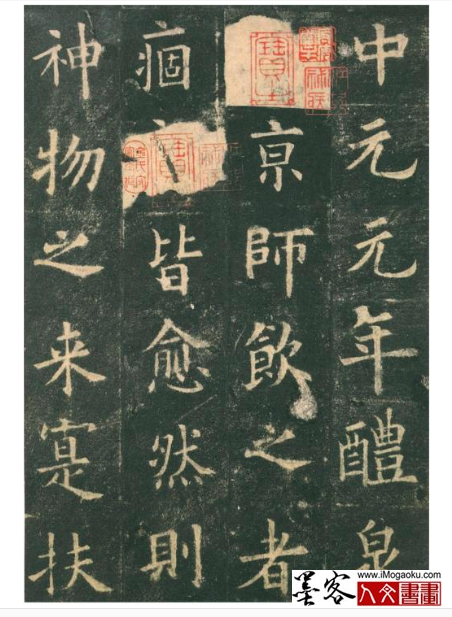 中元元年醴泉
亰師飲之者
痼皆愈然則
神物之来寔扶
www.iMogaoku.com
墨客
人文書畫